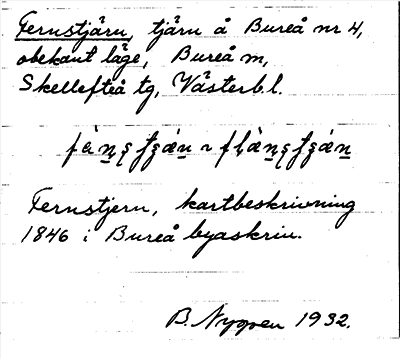 Fernstjärn, tjärn å Bureå nr 4,
obekant läge, Bureå sn,
Skellefteå tg, Västerb.l.
Fernstjern, kartbeskrivning
1846 i Bureå byaskrin.
B. Nygren 1932.